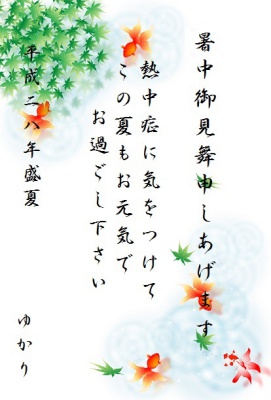 暑中御見舞申しあげます
熱中症に気をつけて
この夏もお元気で
お過ごし下さい
平成二八年盛夏
ゆかり